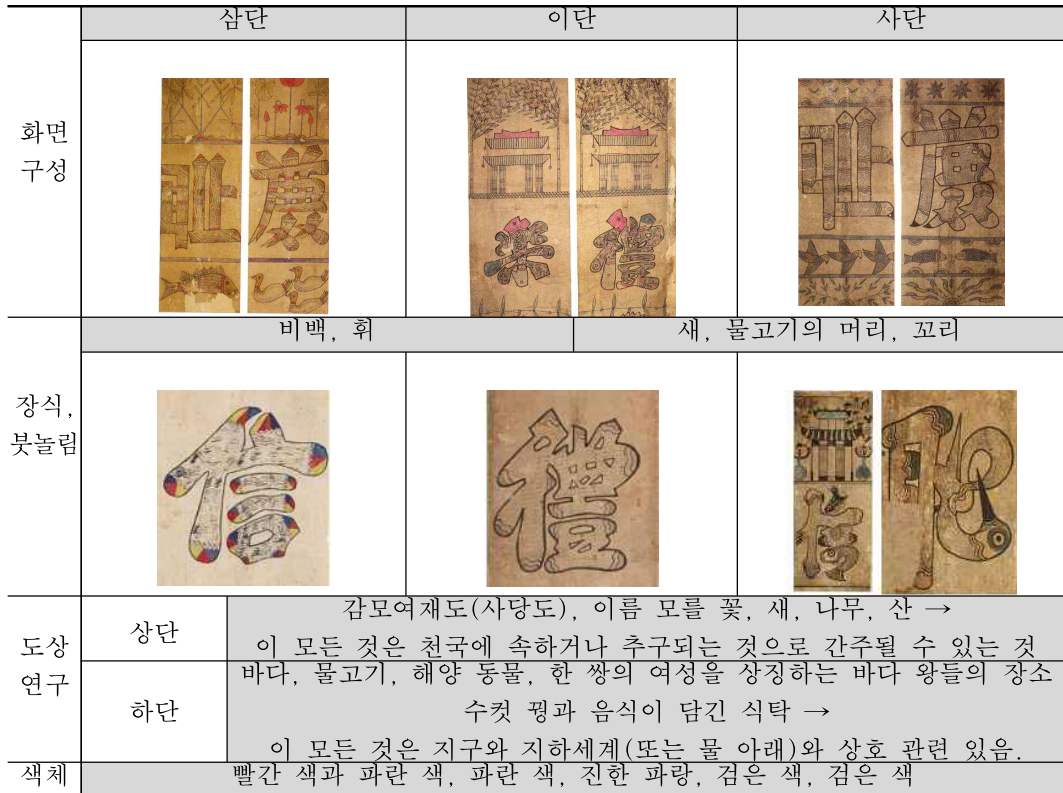 삼단 이단 사단
화면
구성
恥 廉 義 禮 恥 廉
비백, 휘 새, 물고기의 머리, 꼬리
장식,
붓놀림
信 禮 信
도상
연구
상단
감모여재도(사당도), 이름 모를 꽃, 새, 나무, 산 →
이 모든 것은 천국에 속하거나 추구되는 것으로 간주될 수 있는 것
하단
바다, 물고기, 해양 동물, 한 쌍의 여성을 상징하는 바다 왕들의 장소
수컷 꿩과 음식이 담긴 식탁 →
이 모든 것은 지구와 지하세계(또는 물 아래)와 상호 관련 있음.
색체 빨간 색과 파란 색, 파란 색, 진한 파랑, 검은 색, 검은 색